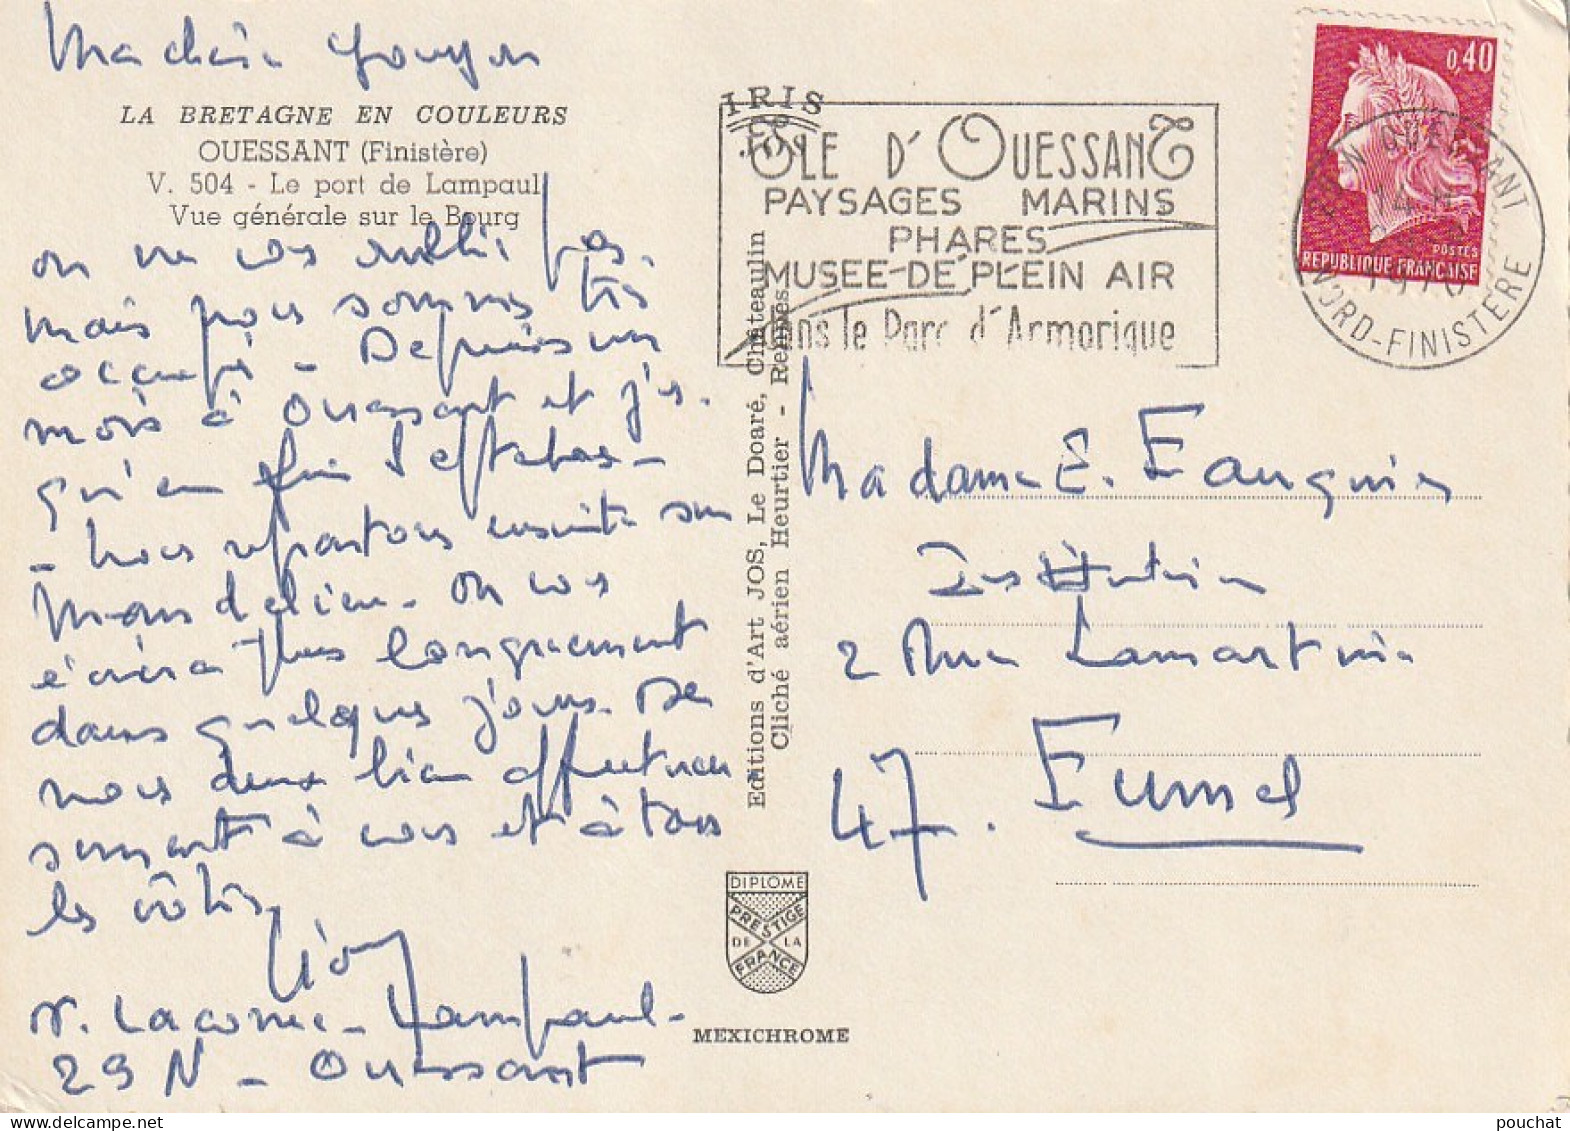 Ma chère
LA BRETAGNE EN COULEURS
OUESSANT (Finistère)
V. 504 - Le port de Lampaul
Vue générale sur le Bourg
on ne vous oublie pas.
mais nous sommes très
occupés - Depuis un
mois à Ouessant et jus.
qu'en fin Septembre -
- Nous repartons ensuite sur
Mandelieu - on vous
écrira plus longuement
dans quelques jours. De
nous deux bien affectueu
sement à vous et à tous
les vôtres.
Lacome - Lampaul -
29 N - Ouessant
IRIS
ILE D'OUESSANT
PAYSAGES MARINS
PHARES
MUSEE DE PLEIN AIR
dans le Parc d'Armorique
0,40
POSTES
REPUBLIQUE FRANÇAISE
OUESSANT
1970
NORD-FINISTERE
Editions d'Art JOS, Le Doaré, Châteaulin
Cliché aérien Heurtier - Rennes
Madame E. Fauguin
Institutrice
2 Rue Lamartine
47. Fumel
DIPLOME
PRESTIGE
DE LA
FRANCE
MEXICHROME
pouchat